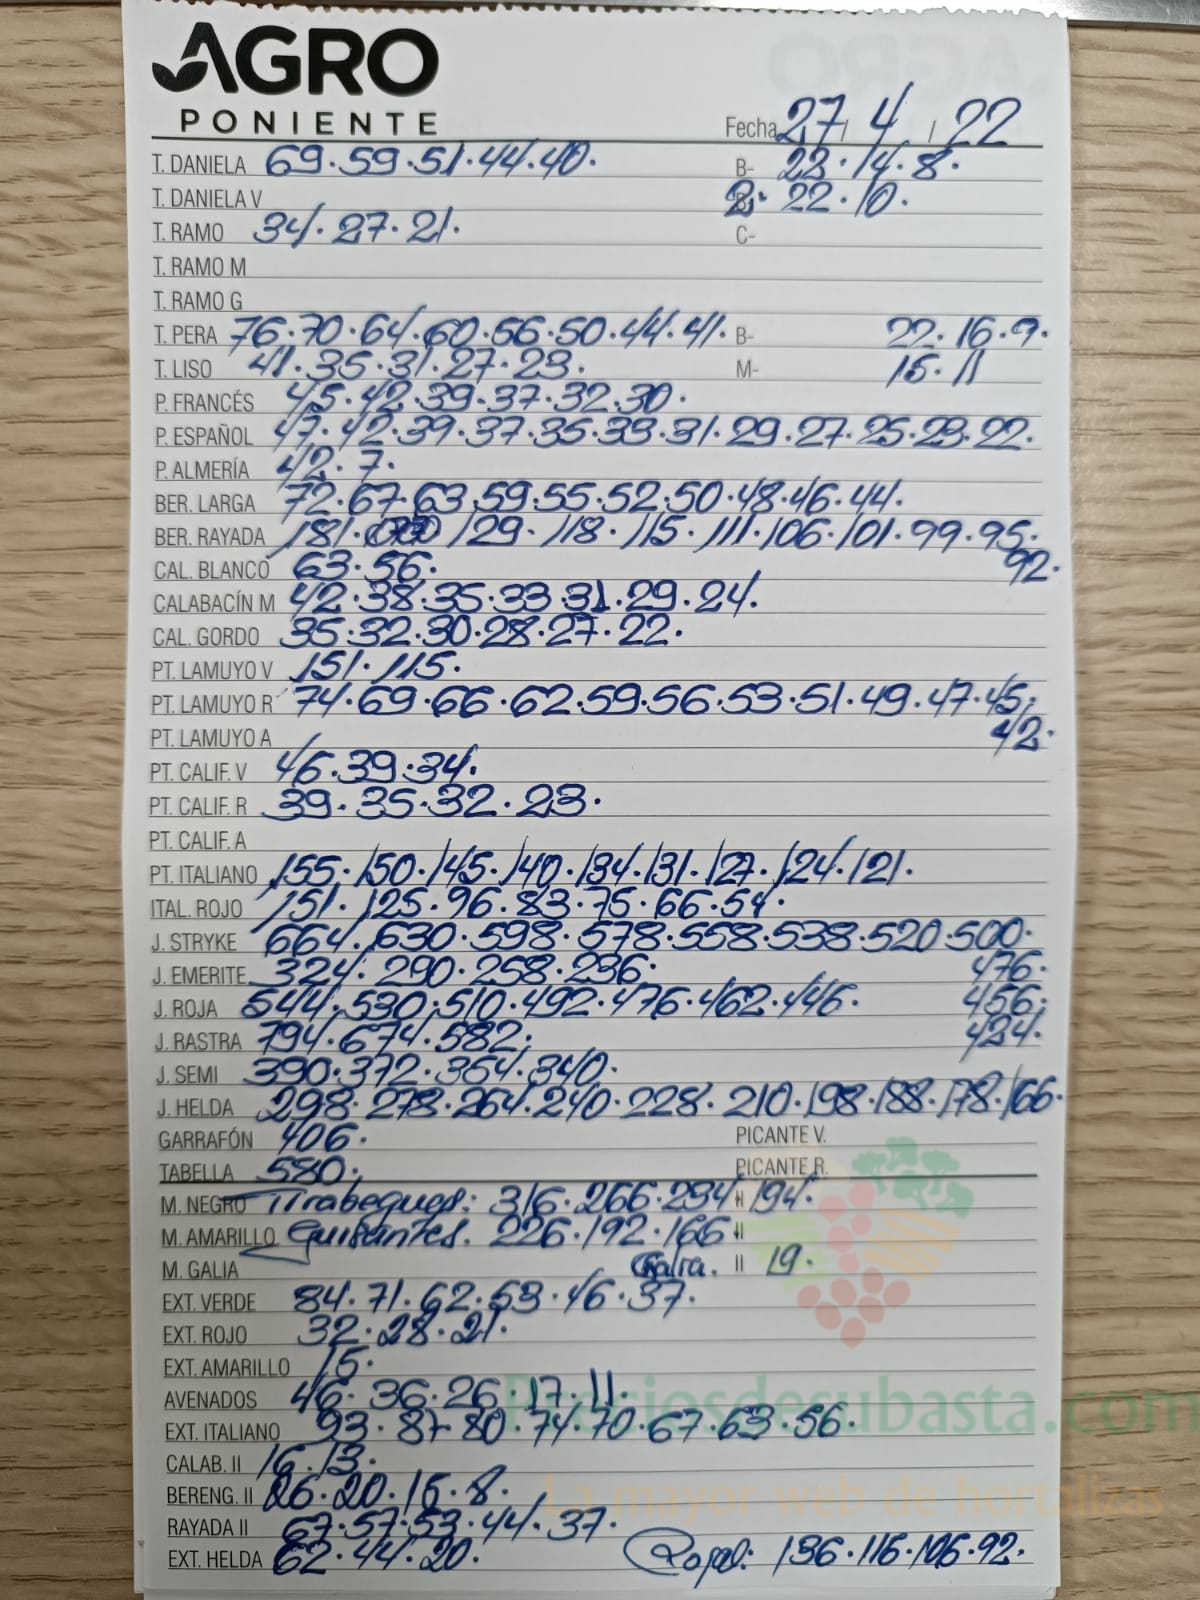 AGRO
PONIENTE
Fecha 27/4/22
T. DANIELA 69.59.51.44.40. B- 23.14.8.
T. DANIELA V 22.10.
T. RAMO 34.27.21. C-
T. RAMO M
T. RAMO G
T. PERA 76.70.64.60.56.50.44.41. B- 22.16.9.
T. LISO 41.35.31.27.23. M- 15.11
P. FRANCÉS 45.42.39.37.32.30.
P. ESPAÑOL 47.42.39.37.35.33.31.29.27.25.23.22.
P. ALMERÍA 42.7.
BER. LARGA 72.67.63.59.55.52.50.48.46.44.
BER. RAYADA 181. 129.118.115.111.106.101.99.95.
92.
CAL. BLANCO 63.56.
CALABACÍN M 42.38.35.33.31.29.24.
CAL. GORDO 35.32.30.28.27.22.
PT. LAMUYO V 151.115.
PT. LAMUYO R 74.69.66.62.59.56.53.51.49.47.45.
42.
PT. LAMUYO A
PT. CALIF. V 46.39.34.
PT. CALIF. R 39.35.32.23.
PT. CALIF. A
PT. ITALIANO 155.150.145.140.134.131.127.124.121.
ITAL. ROJO 151.125.96.83.75.66.54.
J. STRYKE 664.630.598.578.558.538.520.500.
476.
J. EMERITE 324.290.258.236.
456.
J. ROJA 544.530.510.492.476.462.446.
424.
J. RASTRA 794.674.582.
J. SEMI 390.372.354.340.
J. HELDA 298.278.264.240.228.210.198.188.178.166.
GARRAFÓN 406. PICANTE V.
TABELLA 580. PICANTE R.
M. NEGRO Tirabeques: 316.266.234 II 194.
M. AMARILLO Guisantes. 226.192.166 II
M. GALIA Galia. II 19.
EXT. VERDE 84.71.62.53.46.37.
EXT. ROJO 32.28.21.
EXT. AMARILLO 15.
AVENADOS 46.36.26.17.11.
EXT. ITALIANO 93.87.80.74.70.67.63.56.
CALAB. II 16.13.
BERENG. II 26.20.15.8.
RAYADA II 67.57.53.44.37.
EXT. HELDA 62.44.20. 136.116.106.92.
Preciosdesubasta.com
La mayor web de hortalizas